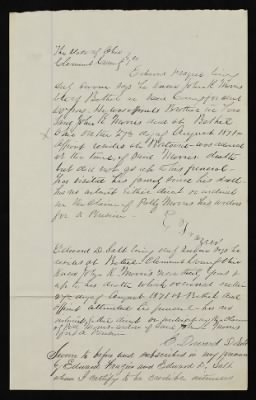 The State of Ohio
Clermont County ss
Edward Frazier being
duly sworn says he knew John A Morris
late of Bethel in said County for about
20 years. He was affiants Brother in Law
Said John A. Morris died at Bethel
Ohio on the 27th day of August 1871
Affiant resided at Batavia
at the time of said Morris death
but did not go up to his funeral
has visited his grave since his death
has no interest either direct or indirect
in the Claim of Polly Morris his widow
for a Pension
E Frazier
Edward D. Salt being duly sworn says he
resides at Bethel Clermont County Ohio
knew John A Morris up
to his death which occurred on the
27th day of August 1871 at Bethel that
affiant attended his funeral has no
interest either direct or indirect in the Claim
of Polly Morris widow of said John A Morris
for a Pension
Edward D. Salt
Sworn to before and subscribed in my presence
by Edward Frazier and Edward D. Salt
whom I certify to be credible witnesses